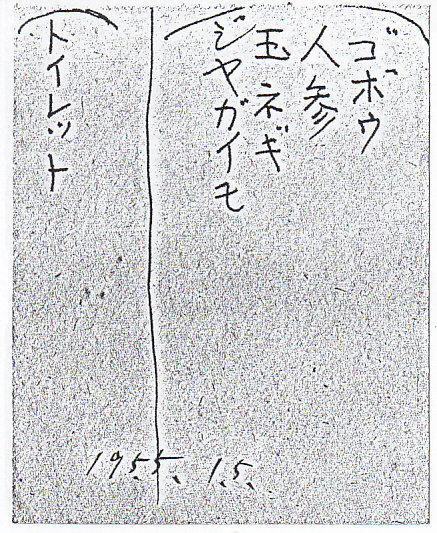 ゴボウ
人参
玉ネギ
ジヤガイモ
トイレット
1955、1.5、